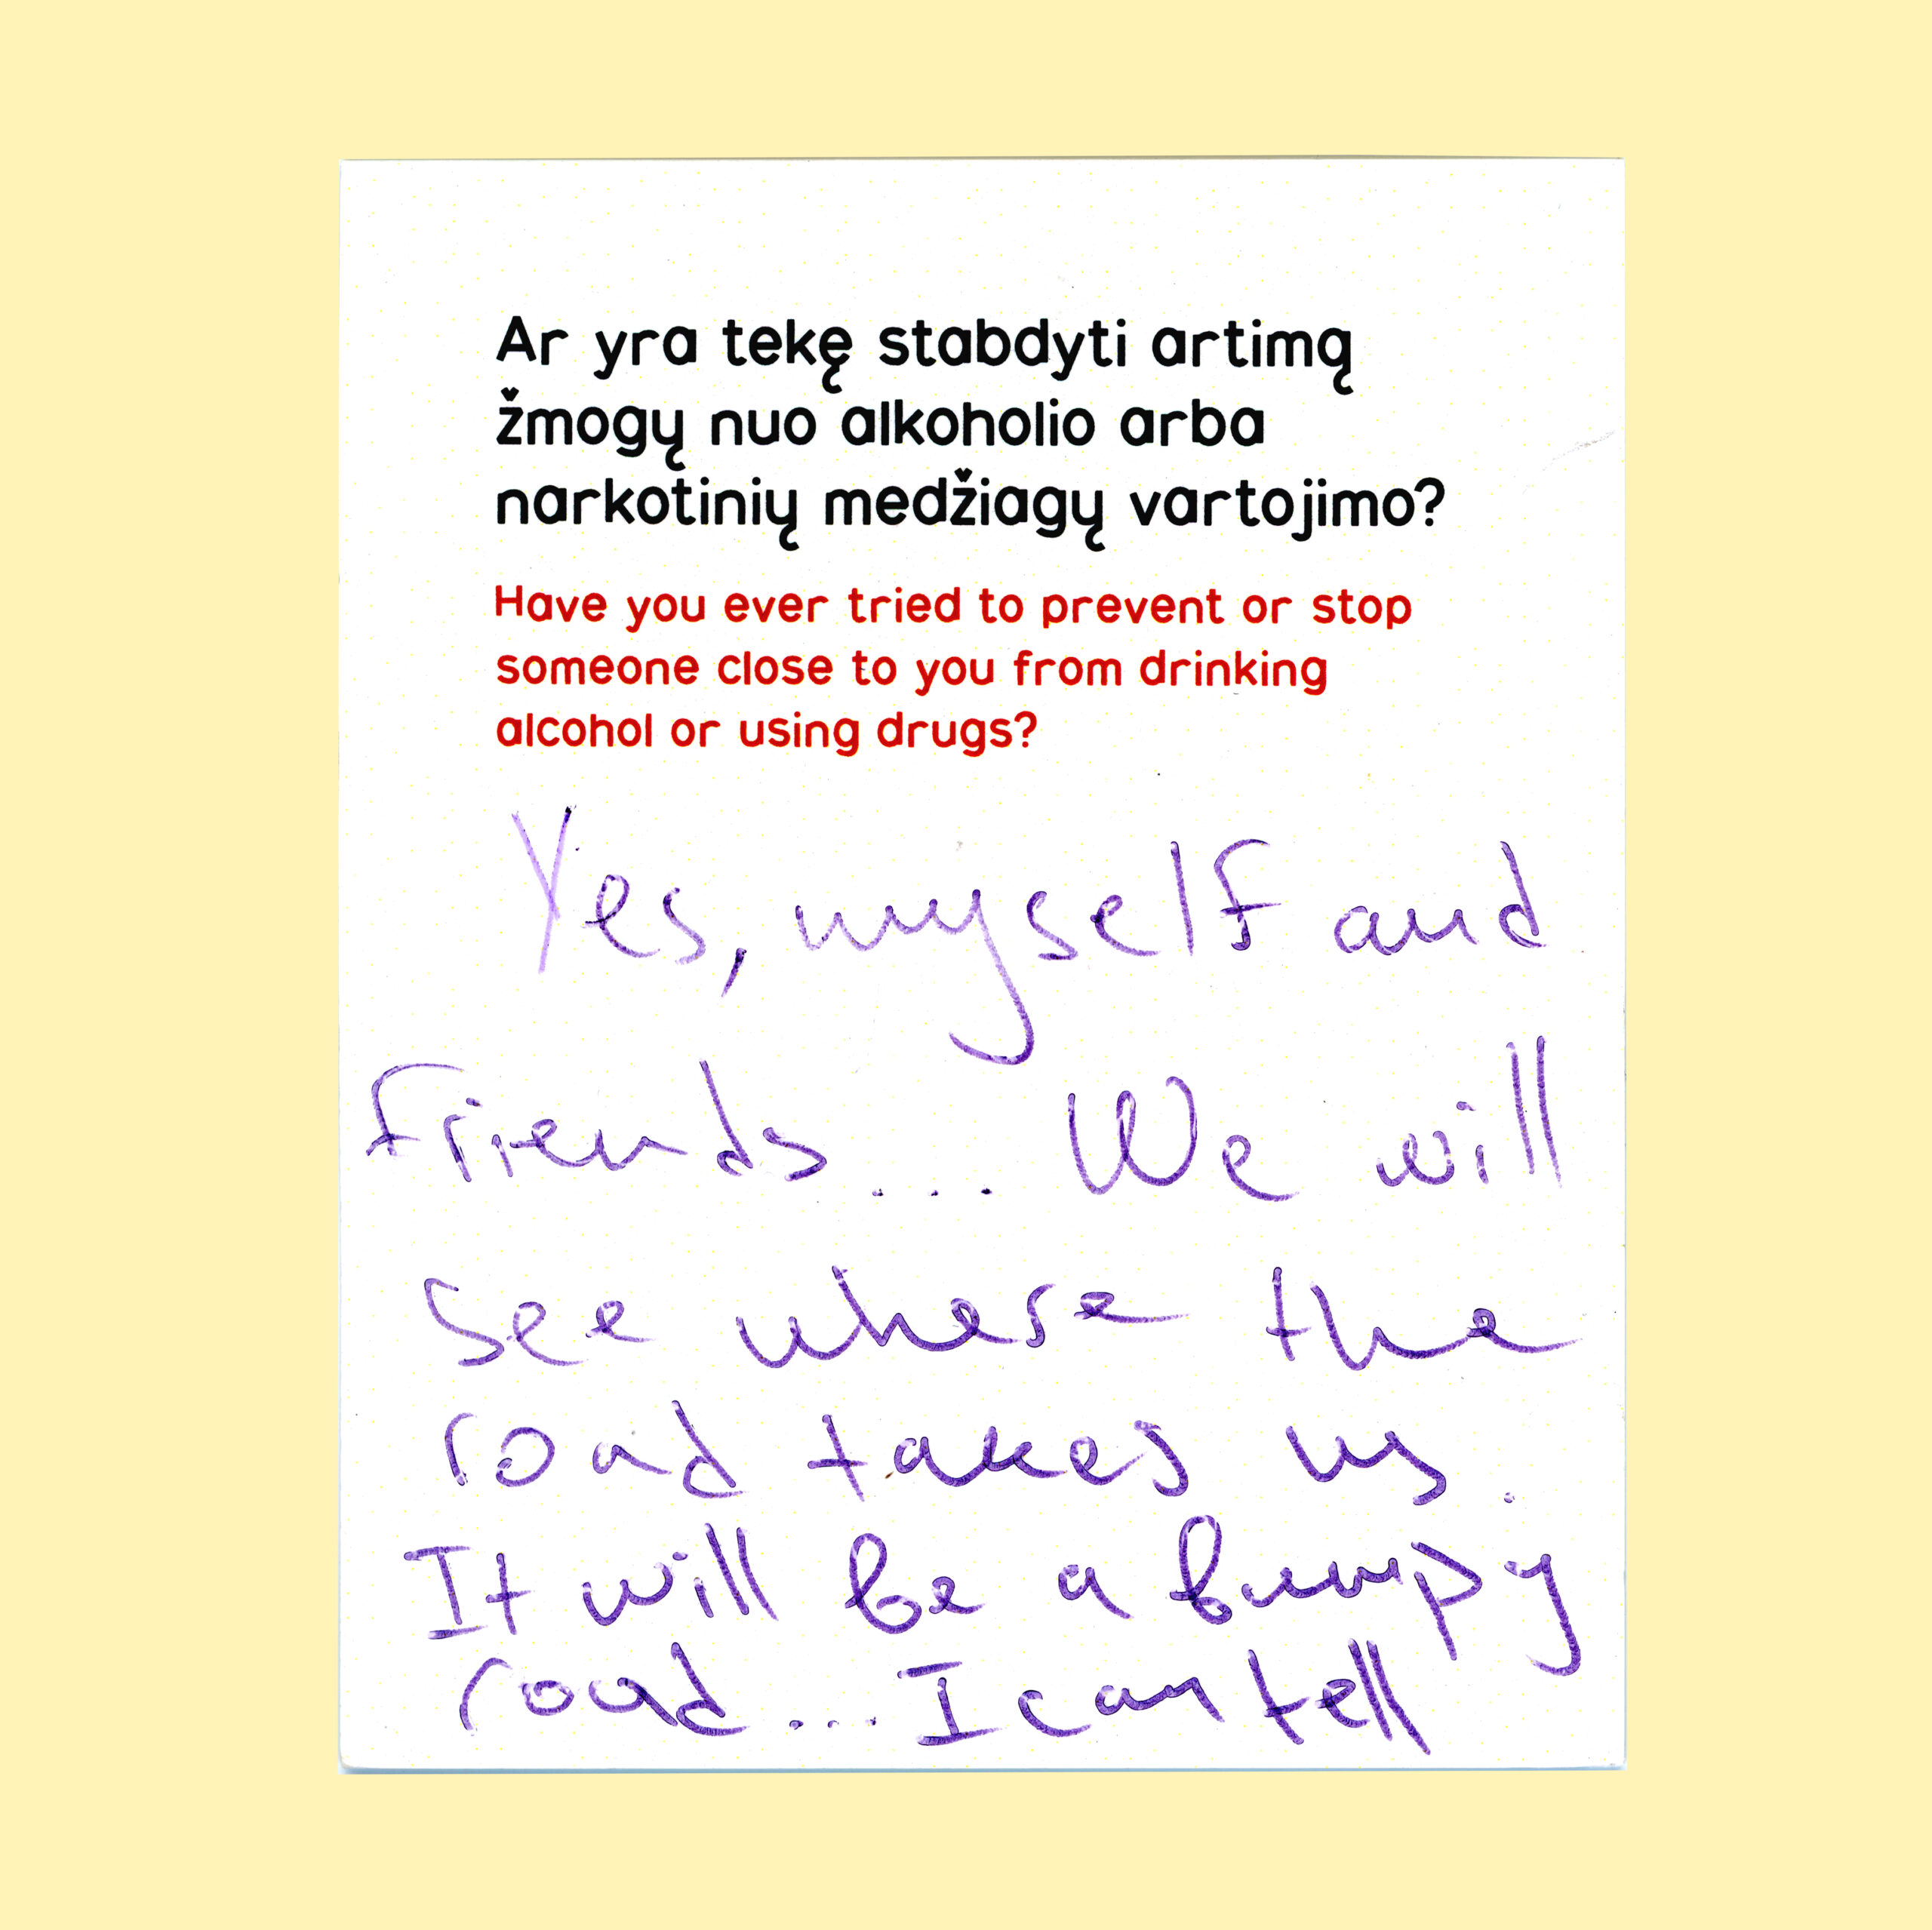 Ar yra tekę stabdyti artimą
žmogų nuo alkoholio arba
narkotinių medžiagų vartojimo?
Have you ever tried to prevent or stop
someone close to you from drinking
alcohol or using drugs?
Yes, myself and
friends... We will
see where the
road takes us.
It will be a bumpy
road... I can tell